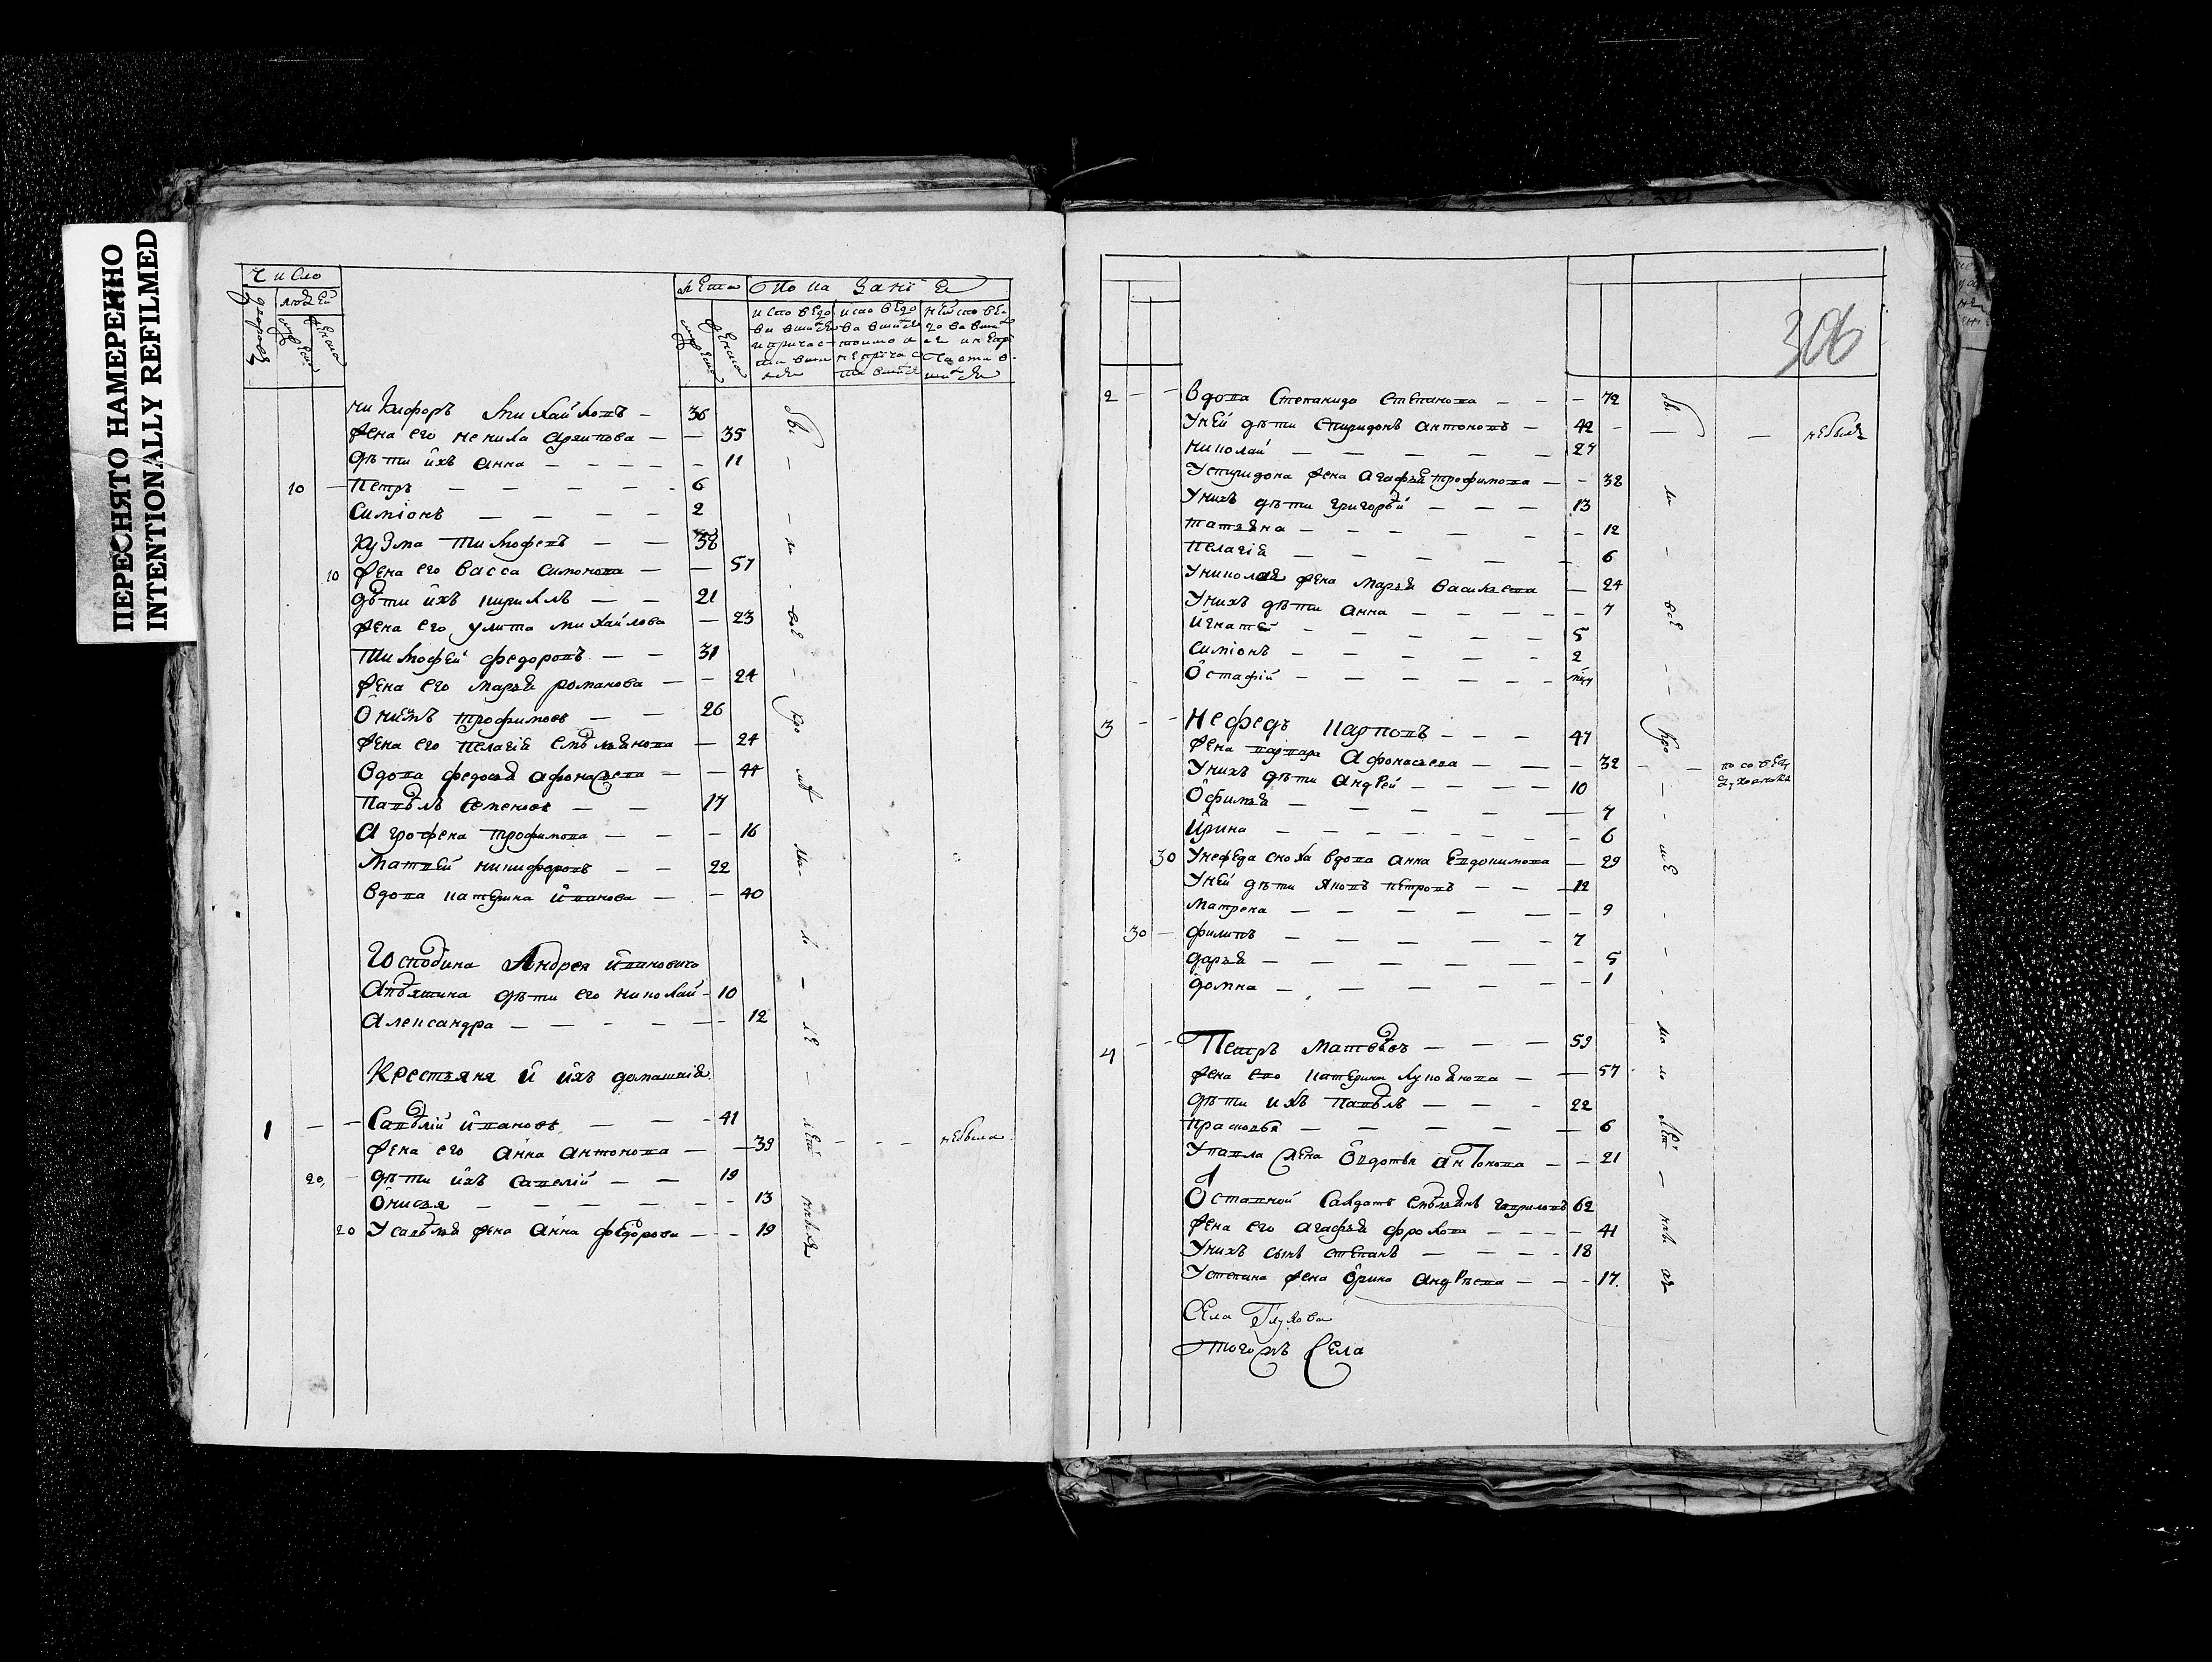 ПЕРЕСНЯТО НАМЕРЕННО
INTENTIONALLY REFILMED
Число
людей
лѣта
Показаніе
Никифоръ Михайловъ — 36
жена его Ненила Архипова — — 35
дѣти ихъ Анна — — — — 11
10 — Петръ — — — — 6
Симіонъ — — — — 2
Кузма Тимофеевъ — — 58
10 жена его Васса Симонова — — 57
дѣти ихъ Кирилъ — — 21
жена его Улита Михайлова — 23
Тимофей Федоровъ — — 31
жена его Марья Романова — — 24
Онисимъ Трофимовъ — — 26
жена его Пелагія Емельянова — 24
вдова Федосья Афонасьева — — 44
Павелъ Семеновъ — — 17
Агрофена Трофимова — — — 16
Матвей Никифоровъ — — 22
вдова Катерина Иванова — — 40
Господина Андрея Ивановича
дѣти его Николай — 10
Александра — — — — — 12
Крестьяня и ихъ домашнія
1 — — Савелій Ивановъ — — — 41
жена его Анна Антонова — — 39 — — — небыла
20 — дѣти ихъ Савелій — — 19
Онисья — — — — — 13
20 У Савелья жена Анна Федорова — — — 19
306
2 — — вдова Степанида Степанова — — — 72
У ней дѣти Спиридонъ Антоновъ — 42 — — — небылъ
Николай — — — — — 27
У Спиридона жена Агафья Трофимова — — 38
У нихъ дѣти Григорей — — — 13
Татьяна — — — — — — 12
Пелагія — — — — — — 6
У Николая жена Марья Васильева — 24
У нихъ дѣти Анна — — — — — 7
Игнатей — — — — — 5
Симіонъ — — — — — 2
Остафій — — — — — —
3 — — Нефедъ Карповъ — — — 47
жена Варвара Афонасьева — — — 32 — — по совѣту духовника
У нихъ дѣти Андрей — — — — 10
Офимья — — — — — 7
Ирина — — — — — — 6
30 У Нефеда сноха вдова Анна Евдокимова — 29
У ней дѣти Яковъ Петровъ — — — 12
Матрена — — — — — — 9
30 — Филипъ — — — — — 7
Дарья — — — — — — 5
Домна — — — — — — 1
4 — — Петръ Матвеевъ — — — 59
жена его Катерина Лукоянова — — 57
дѣти ихъ Павелъ — — — 22
Прасковья — — — — — 6
У Павла жена Овдотья Антонова — — 21
Оставной Салдатъ Емельянъ Гавриловъ 62
жена его Агафья Фролова — — — — 41
У нихъ сынъ Степанъ — — — — 18
У Степана жена Орина Андреева — — — 17
Села Глухова
тогожъ Села